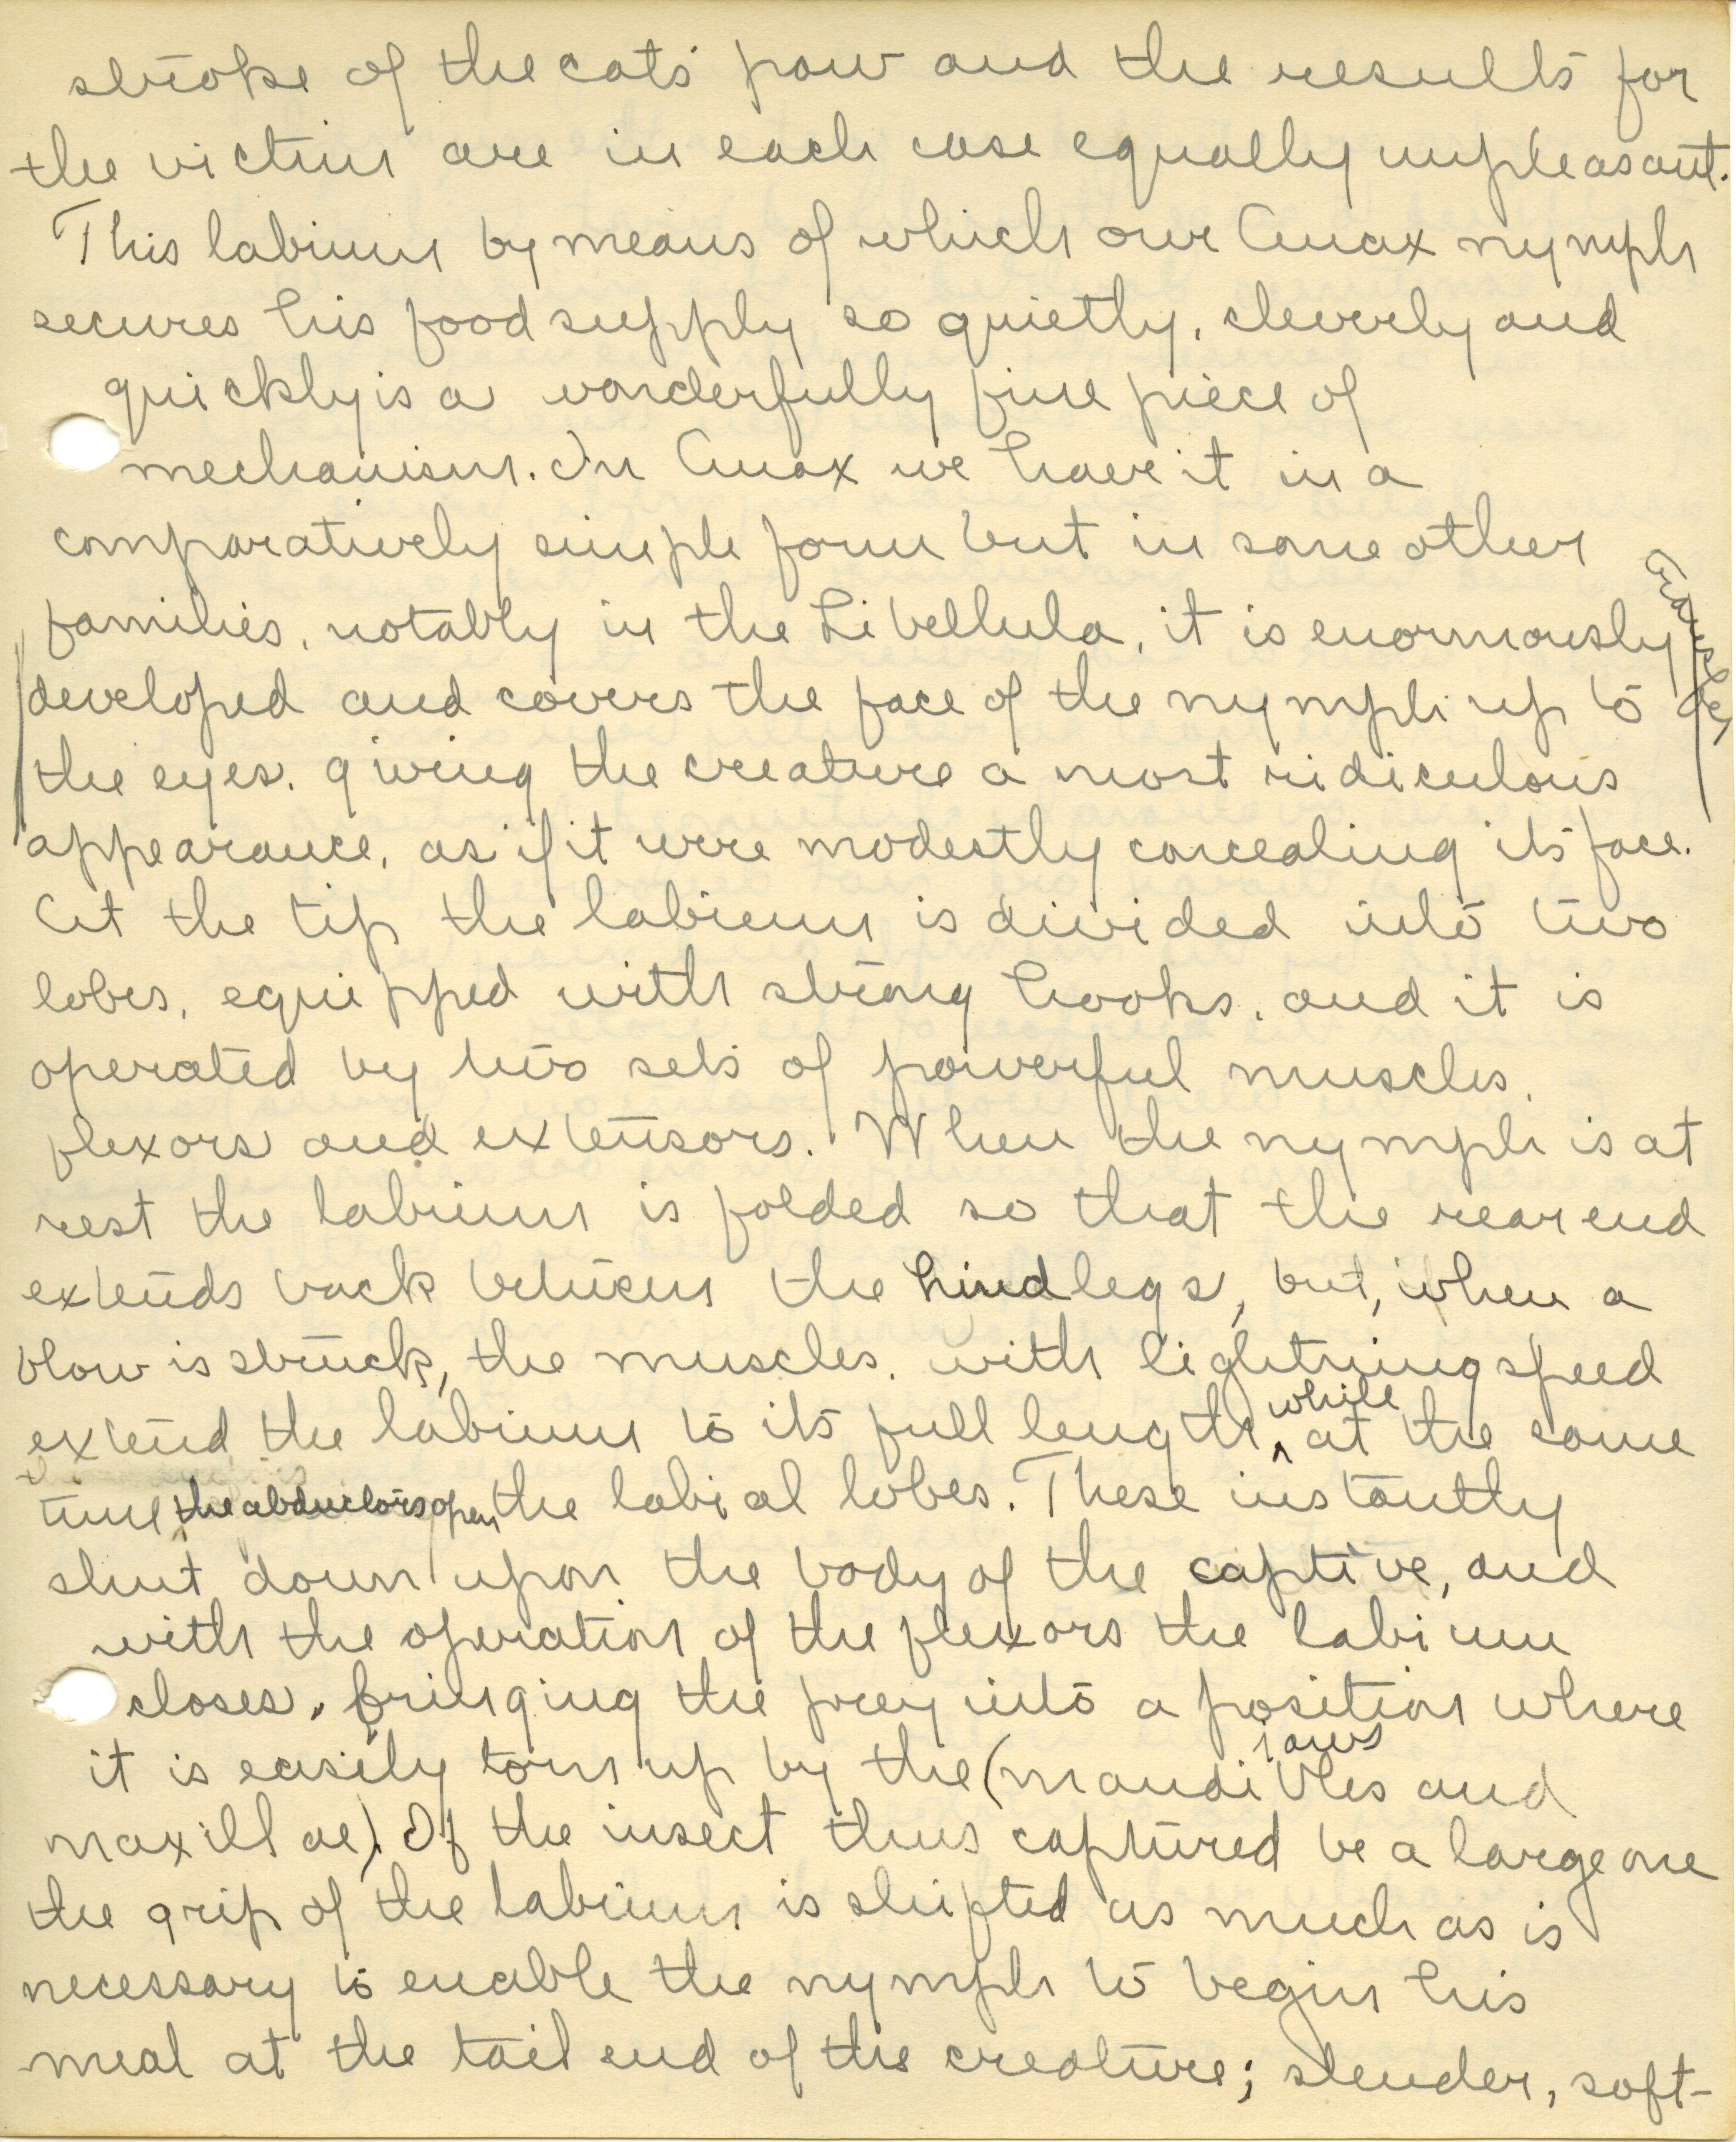 stroke of the cats' paw and the results for
the victim are in each case equally unpleasant.
This labium by means of which our Anax nymph
secures his food supply so quietly, cleverly and
quickly is a wonderfully fine piece of
mechanism. In Anax we have it in a
comparatively simple form but in some other
families, notably in the Libellula, it is enormously
developed and covers the face of the nymph up to
the eyes, giving the creature a most ridiculous
appearance, as if it were modestly concealing its face.
At the tip the labium is divided into two
lobes, equipped with strong hooks, and it is
operated by two sets of powerful muscles,
flexors and extensors. When the nymph is at
rest the labium is folded so that the rear end
extends back between the hind legs, but, when a
blow is struck, the muscles, with lightning speed
extend the labium to its full length, while at the same
time the abductors open the labial lobes. These instantly
shut down upon the body of the captive, and
with the operation of the flexors the labium
closes, bringing the prey into a position where
jaws
it is easily torn up by the (mandibles and
maxillae). If the insect thus captured be a large one
the grip of the labium is shifted as much as is
necessary to enable the nymph to begin his
meal at the tail end of the creature; slender, soft-